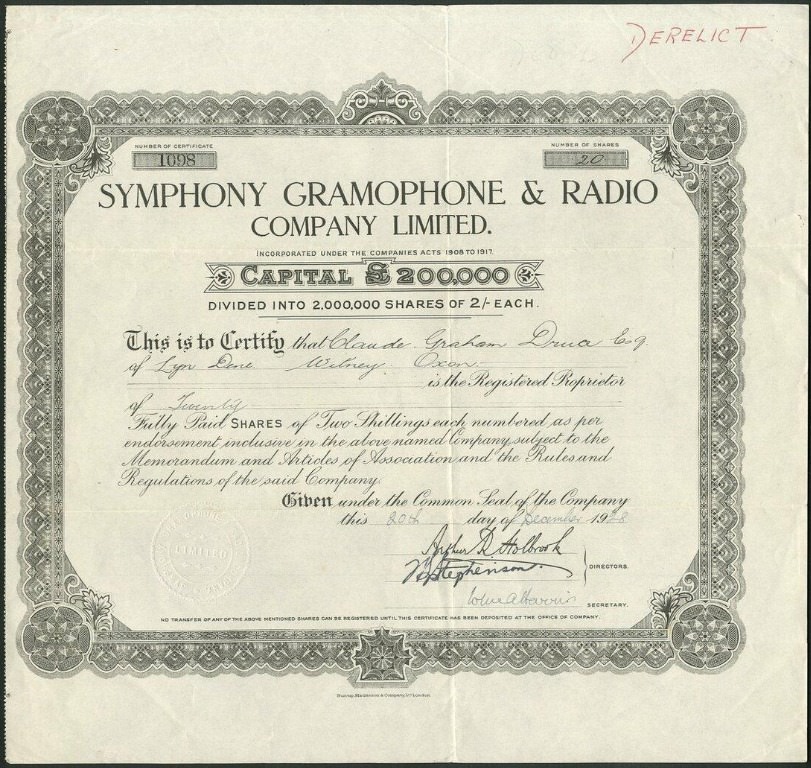 DERELICT
NUMBER OF CERTIFICATE
1098
NUMBER OF SHARES
20
SYMPHONY GRAMOPHONE & RADIO
COMPANY LIMITED.
INCORPORATED UNDER THE COMPANIES ACTS 1908 TO 1917.
CAPITAL £200,000
DIVIDED INTO 2,000,000 SHARES OF 2/- EACH.
This is to Certify that Claude Graham Druce Esq.
of Lyn Dene Witney Oxon
is the Registered Proprietor
of Twenty
Fully Paid SHARES of Two Shillings each numbered as per
endorsement inclusive in the above named Company, subject to the
Memorandum and Articles of Association and the Rules and
Regulations of the said Company.
Given under the Common Seal of the Company
this 20th day of December 1928
Arthur R. Holbrook
Stephenson
DIRECTORS.
LIMITED
SECRETARY.
NO TRANSFER OF ANY OF THE ABOVE MENTIONED SHARES CAN BE REGISTERED UNTIL THIS CERTIFICATE HAS BEEN DEPOSITED AT THE OFFICE OF COMPANY.